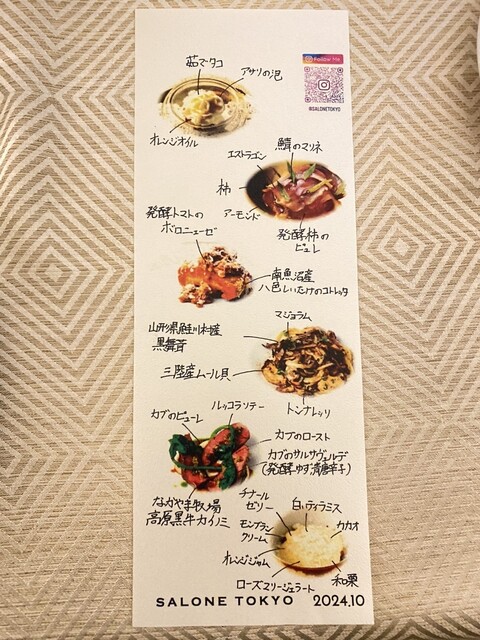 Follow Me
@SALONETOKYO
茹でタコ
アサリの泡
オレンジオイル
エストラゴン
鯖のマリネ
柿
アーモンド
発酵柿の
ピュレ
発酵トマトの
ボロニェーゼ
南魚沼産
八色しいたけのコトレッタ
マジョラム
山形県鮭川村産
黒舞茸
三陸産ムール貝
トンナレッリ
カブのピューレ
ルッコラソテー
カブのロースト
カブのサルサヴェルデ
(発酵ゆず、青唐辛子)
なかやま牧場
高原黒牛カイノミ
チナール
ゼリー
白いティラミス
モンブラン
クリーム
カカオ
オレンジジャム
ローズマリージェラート
和栗
SALONE TOKYO 2024.10